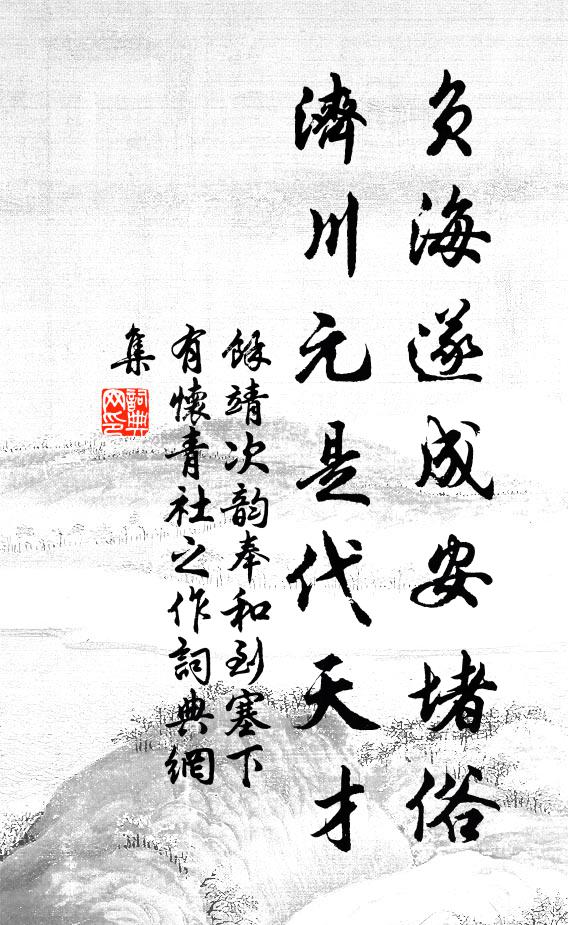 负海遂成安堵俗
濟川元是代天才
餘靖次韵奉和到塞下
有懷青社之作詞典網
集
詞典
网印